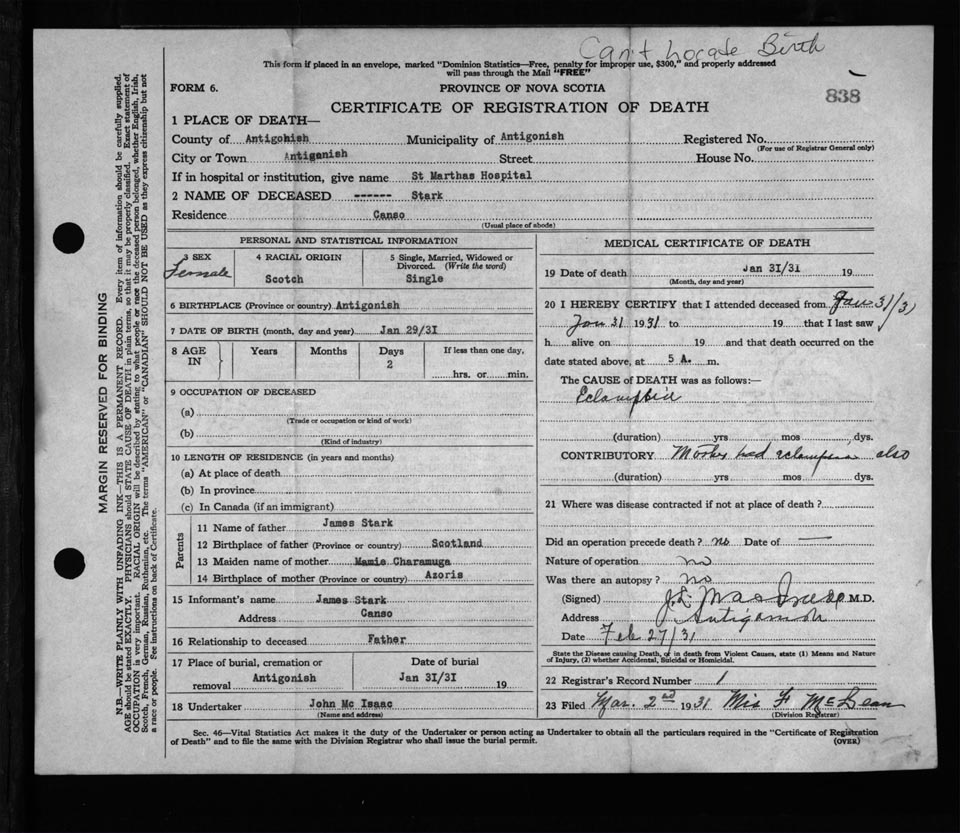 Can't Locate Birth
This form if placed in an envelope, marked "Dominion Statistics—Free, penalty for improper use, $300," and properly addressed
will pass through the Mail "FREE"
FORM 6.
PROVINCE OF NOVA SCOTIA
838
CERTIFICATE OF REGISTRATION OF DEATH
1 PLACE OF DEATH—
County of Antigonish Municipality of Antigonish Registered No.
(For use of Registrar General only)
City or Town Antigonish Street House No.
If in hospital or institution, give name St Marthas Hospital
2 NAME OF DECEASED ------ Stark
Residence Canso
(Usual place of abode)
PERSONAL AND STATISTICAL INFORMATION
3 SEX 4 RACIAL ORIGIN 5 Single, Married, Widowed or
Divorced. (Write the word)
Female Scotch Single
6 BIRTHPLACE (Province or country) Antigonish
7 DATE OF BIRTH (month, day and year) Jan 29/31
8 AGE IN Years Months Days If less than one day,
2 hrs. or min.
9 OCCUPATION OF DECEASED
(a)
(Trade or occupation or kind of work)
(b)
(Kind of industry)
10 LENGTH OF RESIDENCE (in years and months)
(a) At place of death
(b) In province
(c) In Canada (if an immigrant)
Parents
11 Name of father James Stark
12 Birthplace of father (Province or country) Scotland
13 Maiden name of mother Mamie Charamuga
14 Birthplace of mother (Province or country) Azoris
15 Informant's name James Stark
Address Canso
16 Relationship to deceased Father
17 Place of burial, cremation or Date of burial
removal Antigonish Jan 31/31 19
18 Undertaker John Mc Isaac
(Name and address)
MEDICAL CERTIFICATE OF DEATH
19 Date of death Jan 31/31 19
(Month, day and year)
20 I HEREBY CERTIFY that I attended deceased from Jan 31/31
Jan 31 1931 to 19 that I last saw
h alive on 19 and that death occurred on the
date stated above, at 5 A. m.
The CAUSE of DEATH was as follows:—
Eclampsia
(duration) yrs mos dys.
CONTRIBUTORY Mother had eclampsia also
(duration) yrs mos dys.
21 Where was disease contracted if not at place of death?
Did an operation precede death? no Date of —
Nature of operation no
Was there an autopsy? no
(Signed) J. L. M.D.
Address Antigonish
Date Feb 27/31
State the Disease causing Death, or in death from Violent Causes, state (1) Means and Nature
of Injury, (2) whether Accidental, Suicidal or Homicidal.
22 Registrar's Record Number 1
23 Filed Mar. 2nd 1931 Mis F McLean
(Division Registrar)
Sec. 46—Vital Statistics Act makes it the duty of the Undertaker or person acting as Undertaker to obtain all the particulars required in the "Certificate of Registration
of Death" and to file the same with the Division Registrar who shall issue the burial permit.
(OVER)
MARGIN RESERVED FOR BINDING
N.B.—WRITE PLAINLY WITH UNFADING INK—THIS IS A PERMANENT RECORD. Every item of information should be carefully supplied.
AGE should be stated EXACTLY. PHYSICIANS should STATE CAUSE OF DEATH in plain terms, so that it may be properly classified. Exact statement of
OCCUPATION is very important. RACIAL ORIGIN will be described by stating to what people or race the deceased person belonged, whether English, Irish,
Scotch, French, German, Russian, Ruthenian, etc. The terms "AMERICAN" or "CANADIAN" SHOULD NOT BE USED as they express citizenship but not
a race or people. See instructions on back of Certificate.